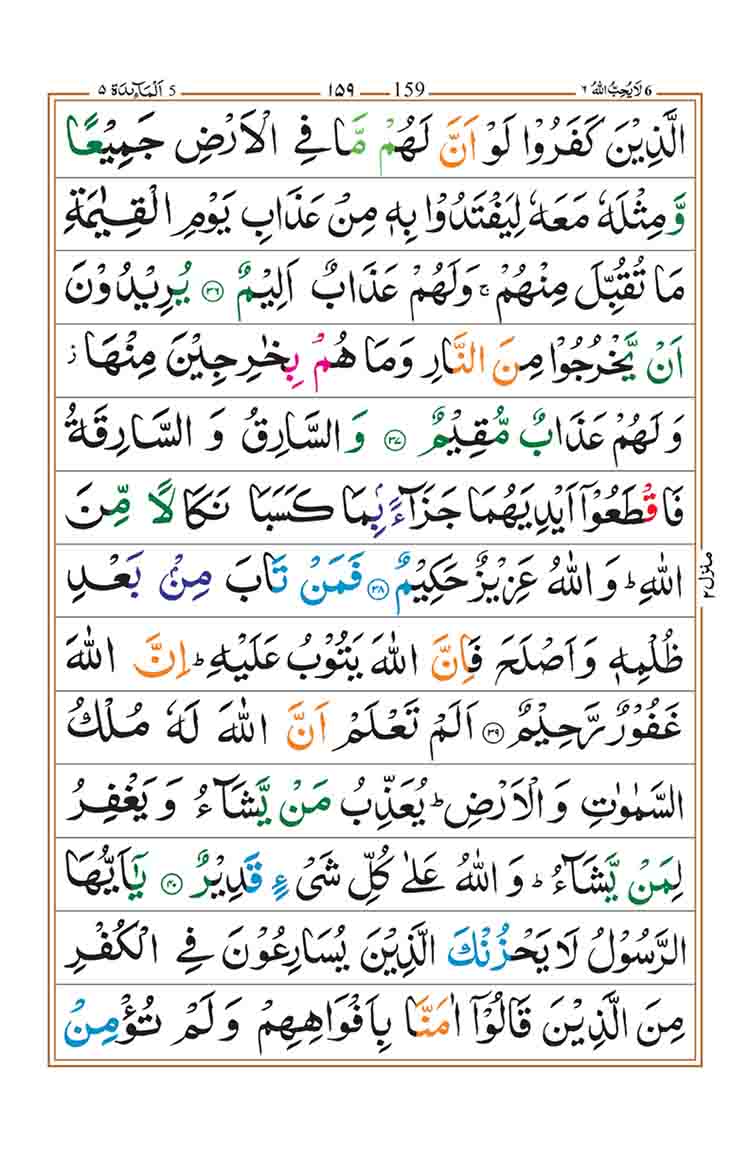 6 لَا يُحِبُّ اللّٰهُ ٦
159 ١٥٩
5 اَلْمَآئِدَة ٥
الَّذِيْنَ كَفَرُوْا لَوْ اَنَّ لَهُمْ مَّا فِي الْاَرْضِ جَمِيْعًا
وَّمِثْلَهٗ مَعَهٗ لِيَفْتَدُوْا بِهٖ مِنْ عَذَابِ يَوْمِ الْقِيٰمَةِ
مَا تُقُبِّلَ مِنْهُمْ ۚ وَلَهُمْ عَذَابٌ اَلِيْمٌ ﴿٣٦﴾ يُرِيْدُوْنَ
اَنْ يَّخْرُجُوْا مِنَ النَّارِ وَمَا هُمْ بِخٰرِجِيْنَ مِنْهَا ؗ
وَلَهُمْ عَذَابٌ مُّقِيْمٌ ﴿٣٧﴾ وَالسَّارِقُ وَ السَّارِقَةُ
فَاقْطَعُوْۤا اَيْدِيَهُمَا جَزَآءًۢ بِمَا كَسَبَا نَكَالًا مِّنَ
اللّٰهِ ؕ وَ اللّٰهُ عَزِيْزٌ حَكِيْمٌ ﴿٣٨﴾ فَمَنْ تَابَ مِنْۢ بَعْدِ
ظُلْمِهٖ وَاَصْلَحَ فَاِنَّ اللّٰهَ يَتُوْبُ عَلَيْهِ ؕ اِنَّ اللّٰهَ
غَفُوْرٌ رَّحِيْمٌ ﴿٣٩﴾ اَلَمْ تَعْلَمْ اَنَّ اللّٰهَ لَهٗ مُلْكُ
السَّمٰوٰتِ وَالْاَرْضِ ؕ يُعَذِّبُ مَنْ يَّشَآءُ وَيَغْفِرُ
لِمَنْ يَّشَآءُ ؕ وَ اللّٰهُ عَلٰى كُلِّ شَيْءٍ قَدِيْرٌ ﴿٤٠﴾ يٰۤاَيُّهَا
الرَّسُوْلُ لَا يَحْزُنْكَ الَّذِيْنَ يُسَارِعُوْنَ فِي الْكُفْرِ
مِنَ الَّذِيْنَ قَالُوْۤا اٰمَنَّا بِاَفْوَاهِهِمْ وَلَمْ تُؤْمِنْ
منزل ٢